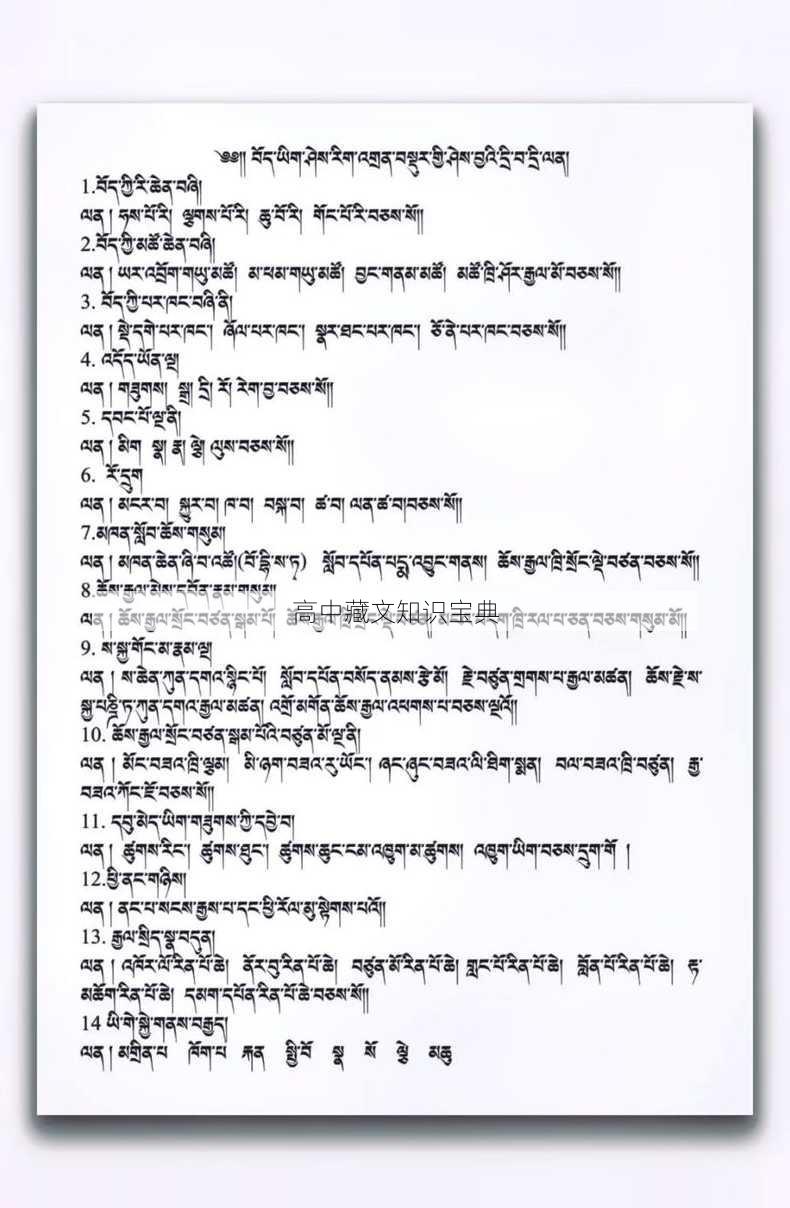 ༄༅།། བོད་ཡིག་ཤེས་རིག་འགྲན་བསྡུར་གྱི་ཤེས་བྱའི་དྲི་བ་དྲི་ལན།
1.བོད་ཀྱི་རི་ཆེན་བཞི།
ལན། ཧས་པོ་རི། ལྕགས་པོ་རི། ཆུ་བོ་རི། གོང་པོ་རི་བཅས་སོ།།
2.བོད་ཀྱི་མཚོ་ཆེན་བཞི།
ལན། ཡར་འབྲོག་གཡུ་མཚོ། མ་ཕམ་གཡུ་མཚོ། བྱང་གནམ་མཚོ། མཚོ་ཁྲི་ཤོར་རྒྱལ་མོ་བཅས་སོ།།
3. བོད་ཀྱི་པར་ཁང་བཞི་ནི།
ལན། སྡེ་དགེ་པར་ཁང་། ཞོལ་པར་ཁང་། སྣར་ཐང་པར་ཁང་། ཅོ་ནེ་པར་ཁང་བཅས་སོ།།
4. འདོད་ཡོན་ལྔ།
ལན། གཟུགས། སྒྲ། དྲི། རོ། རེག་བྱ་བཅས་སོ།།
5. དབང་པོ་ལྔ་ནི།
ལན། མིག སྣ། རྣ། ལྕེ། ལུས་བཅས་སོ།།
6. རོ་དྲུག
ལན། མངར་བ། སྐྱུར་བ། ཁ་བ། བསྐ་བ། ཚ་བ། ལན་ཚ་བ།བཅས་སོ།།
7.མཁན་སློབ་ཆོས་གསུམ།
ལན། མཁན་ཆེན་ཞི་བ་འཚོ།(བོ་དྷི་ས་ཏྭ) སློབ་དཔོན་པདྨ་འབྱུང་གནས། ཆོས་རྒྱལ་ཁྲི་སྲོང་ལྡེ་བཙན་བཅས་སོ།།
8.ཆོས་རྒྱལ་མེས་དབོན་རྣམ་གསུམ།།
ལན། ཆོས་རྒྱལ་སྲོང་བཙན་སྒམ་པོ། ཁྲི་རལ་པ་ཅན་བཅས་གསུམ་མོ།།
高中藏文知识宝典
9. ས་སྐྱ་གོང་མ་རྣམ་ལྔ།
ལན། ས་ཆེན་ཀུན་དགའ་སྙིང་པོ། སློབ་དཔོན་བསོད་ནམས་རྩེ་མོ། རྗེ་བཙུན་གྲགས་པ་རྒྱལ་མཚན། ཆོས་རྗེ་ས་
སྐྱ་པཎྜི་ཏ་ཀུན་དགའ་རྒྱལ་མཚན། འགྲོ་མགོན་ཆོས་རྒྱལ་འཕགས་པ་བཅས་ལྔའོ།།
10. ཆོས་རྒྱལ་སྲོང་བཙན་སྒམ་པོའི་བཙུན་མོ་ལྔ་ནི།
ལན། མོང་བཟའ་ཁྲི་ལྕམ། མི་ཉག་བཟའ་རུ་ཡོང་། ཞང་ཞུང་བཟའ་ལི་ཐིག་སྨན། བལ་བཟའ་ཁྲི་བཙུན། རྒྱ་
བཟའ་ཀོང་ཇོ་བཅས་སོ།།
11. དབུ་མེད་ཡིག་གཟུགས་ཀྱི་དབྱེ་བ།
ལན། ཚུགས་རིང་། ཚུགས་ཐུང་། ཚུགས་ཆུང་ངམ་འཁྱུག་མ་ཚུགས། འཁྱུག་ཡིག་བཅས་དྲུག་གོ །
12.ཕྱི་ནང་གཉིས།
ལན། ནང་པ་སངས་རྒྱས་པ་དང་ཕྱི་རོལ་མུ་སྟེགས་པའོ།།
13. རྒྱལ་སྲིད་སྣ་བདུན།
ལན། འཁོར་ལོ་རིན་པོ་ཆེ། ནོར་བུ་རིན་པོ་ཆེ། བཙུན་མོ་རིན་པོ་ཆེ། གླང་པོ་རིན་པོ་ཆེ། བློན་པོ་རིན་པོ་ཆེ། རྟ་
མཆོག་རིན་པོ་ཆེ། དམག་དཔོན་རིན་པོ་ཆེ་བཅས་སོ།།
14 ཡི་གེ་སྐྱེ་གནས་བརྒྱད།
ལན། མགྲིན་པ ཁོག་པ རྐན སྤྱི་བོ སྣ སོ ལྕེ མཆུ